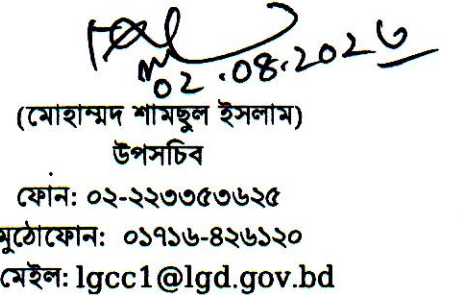 02.08.2026
(মোহাম্মদ শামছুল ইসলাম)
উপসচিব
ফোন: ০২-২২৩৩৫৩৬২৫
মুঠোফোন: ০১৭১৬-৪২৬১২০
মেইল: lgcc1@lgd.gov.bd